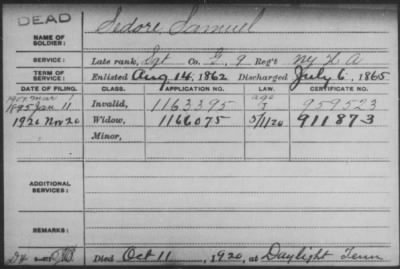 DEAD
NAME OF SOLDIER: Sidore, Samuel
SERVICE: Late rank, Sgt Co. G, 9 Reg't NY H A
TERM OF SERVICE: Enlisted Aug 14, 1862 Discharged July 6, 1865
DATE OF FILING. CLASS. APPLICATION NO. LAW. CERTIFICATE NO.
1895 Jan 11 Invalid, 1163395 959523
1920 Nov 20 Widow, 1166075 5/1/20 911873
Minor,
ADDITIONAL SERVICES:
REMARKS:
Died Oct 11, 1920, at Daylight Tenn